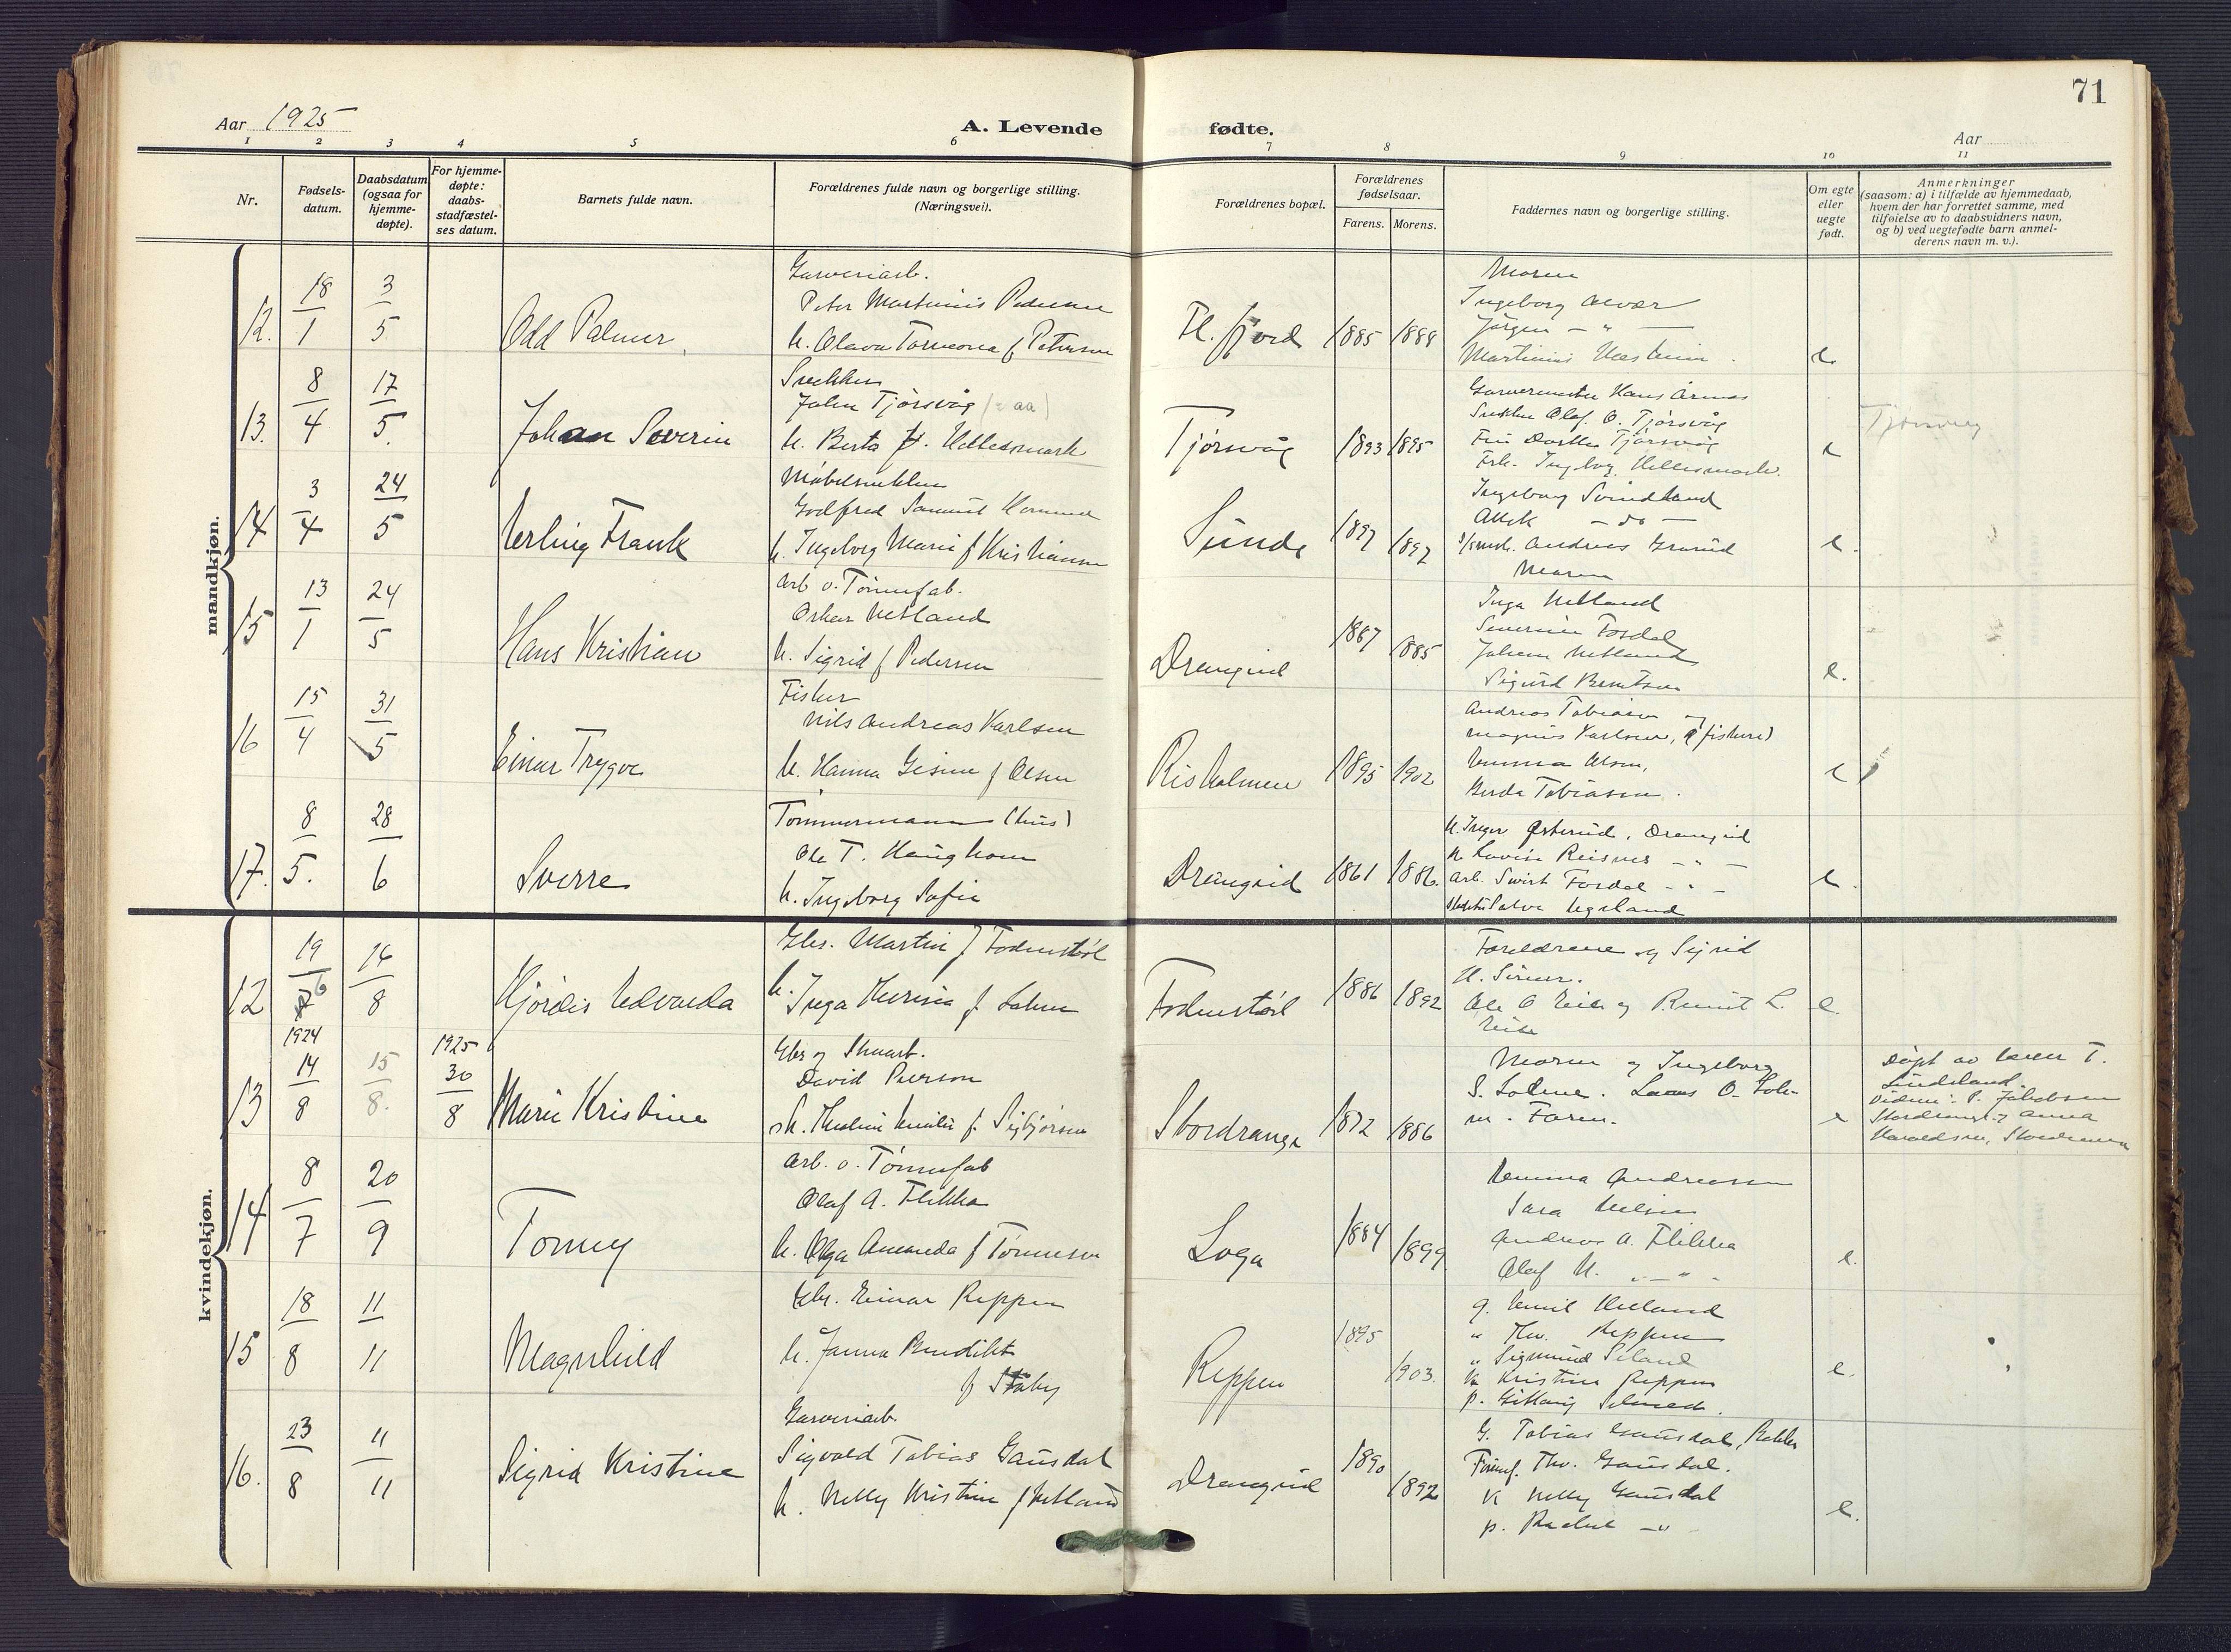 71
Aar 1925
A. Levende fødte.
Aar
1 2 3 4 5 6 7 8 9 10 11
Nr.
Fødsels-
datum.
Daabsdatum
(ogsaa for
hjemme-
døpte).
For hjemme-
døpte:
daabs-
stadfæstel-
ses datum.
Barnets fulde navn.
Forældrenes fulde navn og borgerlige stilling.
(Næringsvei).
Forældrenes bopæl.
Forældrenes
fødselsaar.
Farens. Morens.
Faddernes navn og borgerlige stilling.
Om egte
eller
uegte
født.
Anmerkninger
(saasom: a) i tilfælde av hjemmedaab,
hvem der har forrettet samme, med
tilføielse av to daabsvidners navn,
og b) ved uegtefødte barn anmel-
derens navn m. v.).
mandkjøn.
12. 18/1 3/5
Odd Palmer
Garveriarb.
Peter Martinius Pedersen
h. Olava f Petersen
Fl. fjord
1885 1888
Moren
Ingeborg
Jørgen - " -
Martinius
e.
13. 8/4 17/5.
Johan Severin
Snekker
John Tjørsvåg (= aa)
h. Berta f. Hellesmark
Tjørsvåg
1893 1895
Garvermester Hans
Snekker Olaf O. Tjørsvåg
Dorthea Tjørsvåg
Frk. Ingeborg Hellesmark.
e
Tjørsvåg
14 3/4 24/5
Erling Frank
Møbelsnekker
Godfred Samuel
h. Ingeborg Marie f Kristiansen
Sunde
1897 1897
Ingeborg Svindland
- do -
Andreas
Moren
e.
15 13/1 24/5
Hans Kristian
Arb v. Tønnefab.
Oskar Netland
h. Sigrid f Pedersen
Drangeid
1887 1885
Inga Netland
Severine Fosdal
Johan Netland
Sigurd Berntsen
e.
16 15/4 31/5
Einar Trygve
Fisker
Nils Andreas Karlsen
h. Hanna Gesine f Olsen
Risholmen
1895 1902
Andreas Tobiasen og
Magnus Karlsen, (fiskere)
Emma Olsen,
Berda Tobiasen.
e
17. 8/5. 28/6
Sverre
Tømmermann (hus)
Ole T. Haughom
h. Ingeborg Sofie
Drangeid
1861 1886.
h. Inger Østerud, Drangeid
h. Lovise Reisnes - " -
arb. Sivert Fosdal - " -
Salve Egeland
e.
kvindekjøn.
12 19/6 16/8
Hjørdis Edvarda
Gbr. Martin J Fodnestøl
h. Inga Theresia f Lohne
Fodnestøl
1886 1892
Foreldrene og Sigrid
H. Sirnes.
Ole O Eike og Bernt L.
Eike
e.
13 1924 14/8 15/8. 1925 30/8
Marie Kristine
Gbr og Skuarb.
David Pierson
h. Emilie f. Sigbjørnsen
Stordrange
1872 1886
Moren og Ingeborg
S. Solme. Laves O. Sol-
m. Faren.
e
Døpt av lærer T.
Lindeland
Vidner: P. Jakobsen
Stordrange og Anna
Haraldsen, Stordrange
14 8/7 20/9
Tonny
Arb. v. Tønnefab
Olaf A. Flikka
h. Olga Amanda f Tønnesen
Loga
1884 1899
Emma Andreassen
Sara Nilsen
Andreas A. Flikka
Olaf N. " - " -
e.
15 18/8 11/11
Magnhild
Gbr. Einar Reppen
h. Janna Bendikte
f Staby
Reppen
1895 1903.
g. Emil Heland
" Thv. Reppen
" Sigmund Seland
K Kristine Reppen
p.
e.
16. 23/8 11/11
Sigrid Kristine
Garveriarb.
Sigvald Tobias Gausdal
h. Nelly Kristine f Netland
Drangeid
1890 1892
G. Tobias Gausdal, Rekke
Thv. Gausdal.
K Nelly Gausdal
p. Rachel - " -
e.